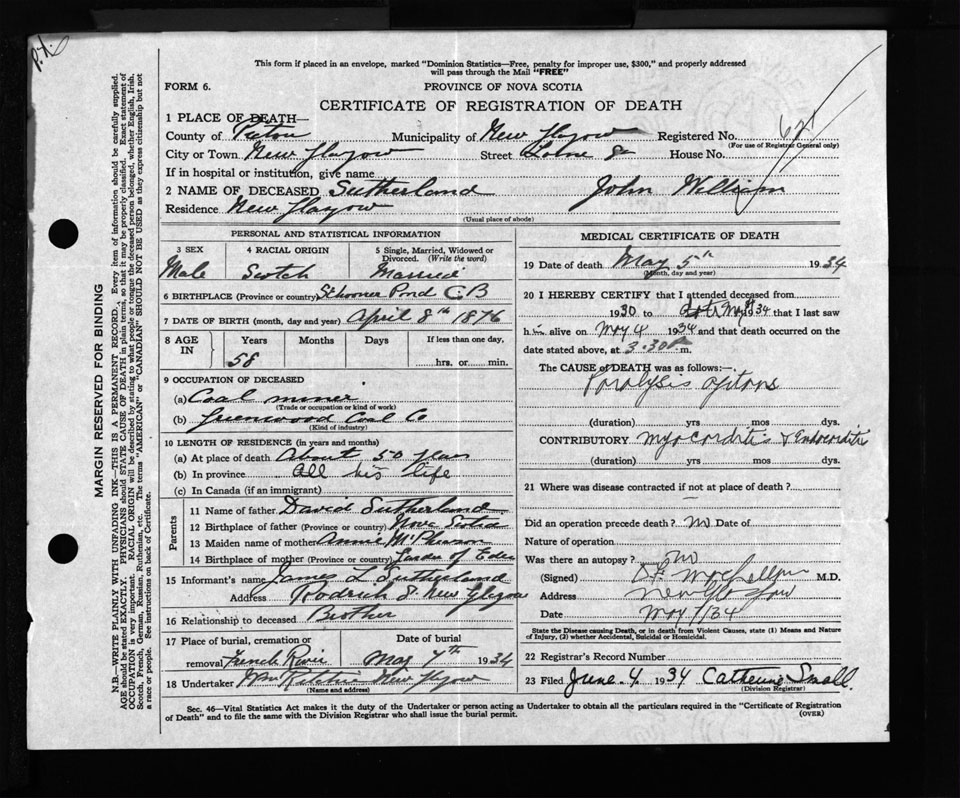 P.X.
This form if placed in an envelope, marked "Dominion Statistics—Free, penalty for improper use, $300," and properly addressed
will pass through the Mail "FREE"
FORM 6.
PROVINCE OF NOVA SCOTIA
CERTIFICATE OF REGISTRATION OF DEATH
1 PLACE OF DEATH—
County of Pictou Municipality of New Glasgow Registered No.
(For use of Registrar General only)
City or Town New Glasgow Street House No.
If in hospital or institution, give name
2 NAME OF DECEASED Sutherland John William
Residence New Glasgow
(Usual place of abode)
PERSONAL AND STATISTICAL INFORMATION
3 SEX 4 RACIAL ORIGIN 5 Single, Married, Widowed or
Divorced. (Write the word)
Male Scotch Married
6 BIRTHPLACE (Province or country) Schooner Pond C B
7 DATE OF BIRTH (month, day and year) April 8th 1876
8 AGE IN Years Months Days If less than one day,
58 hrs. or min.
9 OCCUPATION OF DECEASED
(a) Coal miner
(Trade or occupation or kind of work)
(b) Greenwood Coal Co
(Kind of industry)
10 LENGTH OF RESIDENCE (in years and months)
(a) At place of death About 50 years
(b) In province All his life
(c) In Canada (if an immigrant)
Parents
11 Name of father David Sutherland
12 Birthplace of father (Province or country) Nova Scotia
13 Maiden name of mother Annie McPherson
14 Birthplace of mother (Province or country)
15 Informant's name James L Sutherland
Address New Glasgow
16 Relationship to deceased Brother
17 Place of burial, cremation or Date of burial
removal French River May 7th 1934
18 Undertaker New Glasgow
(Name and address)
MEDICAL CERTIFICATE OF DEATH
19 Date of death May 5th 1934
(Month, day and year)
20 I HEREBY CERTIFY that I attended deceased from
1930 to 1934 that I last saw
h alive on May 4 1934 and that death occurred on the
date stated above, at 3.30 P m.
The CAUSE OF DEATH was as follows:—
Paralysis agitans
(duration) yrs mos dys.
CONTRIBUTORY Myocarditis & Endocarditis
(duration) yrs mos dys.
21 Where was disease contracted if not at place of death?
Did an operation precede death? no Date of
Nature of operation
Was there an autopsy? no
(Signed) M.D.
Address New Glasgow
Date May 7/34
State the Disease causing Death, or in death from Violent Causes, state (1) Means and Nature
of Injury, (2) whether Accidental, Suicidal or Homicidal.
22 Registrar's Record Number
23 Filed June 4 1934 Catherine Small.
(Division Registrar)
Sec. 46—Vital Statistics Act makes it the duty of the Undertaker or person acting as Undertaker to obtain all the particulars required in the "Certificate of Registration
of Death" and to file the same with the Division Registrar who shall issue the burial permit. (OVER)
MARGIN RESERVED FOR BINDING
N.B.—WRITE PLAINLY WITH UNFADING INK—THIS IS A PERMANENT RECORD. Every item of information should be carefully supplied.
AGE should be stated EXACTLY. PHYSICIANS should STATE CAUSE OF DEATH in plain terms, so that it may be properly classified. Exact statement of
OCCUPATION is very important. RACIAL ORIGIN will be described by stating to what people or tongue the deceased person belonged, whether English, Irish,
Scotch, French, German, Russian, Ruthenian, etc. The terms "AMERICAN" or "CANADIAN" SHOULD NOT BE USED as they express citizenship but not
a race or people. See instructions on back of Certificate.